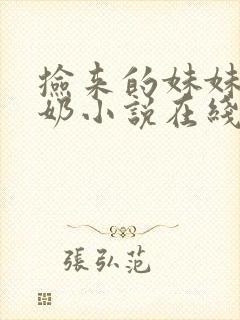 撿来的妹妹
奶小説在綫
張弘范